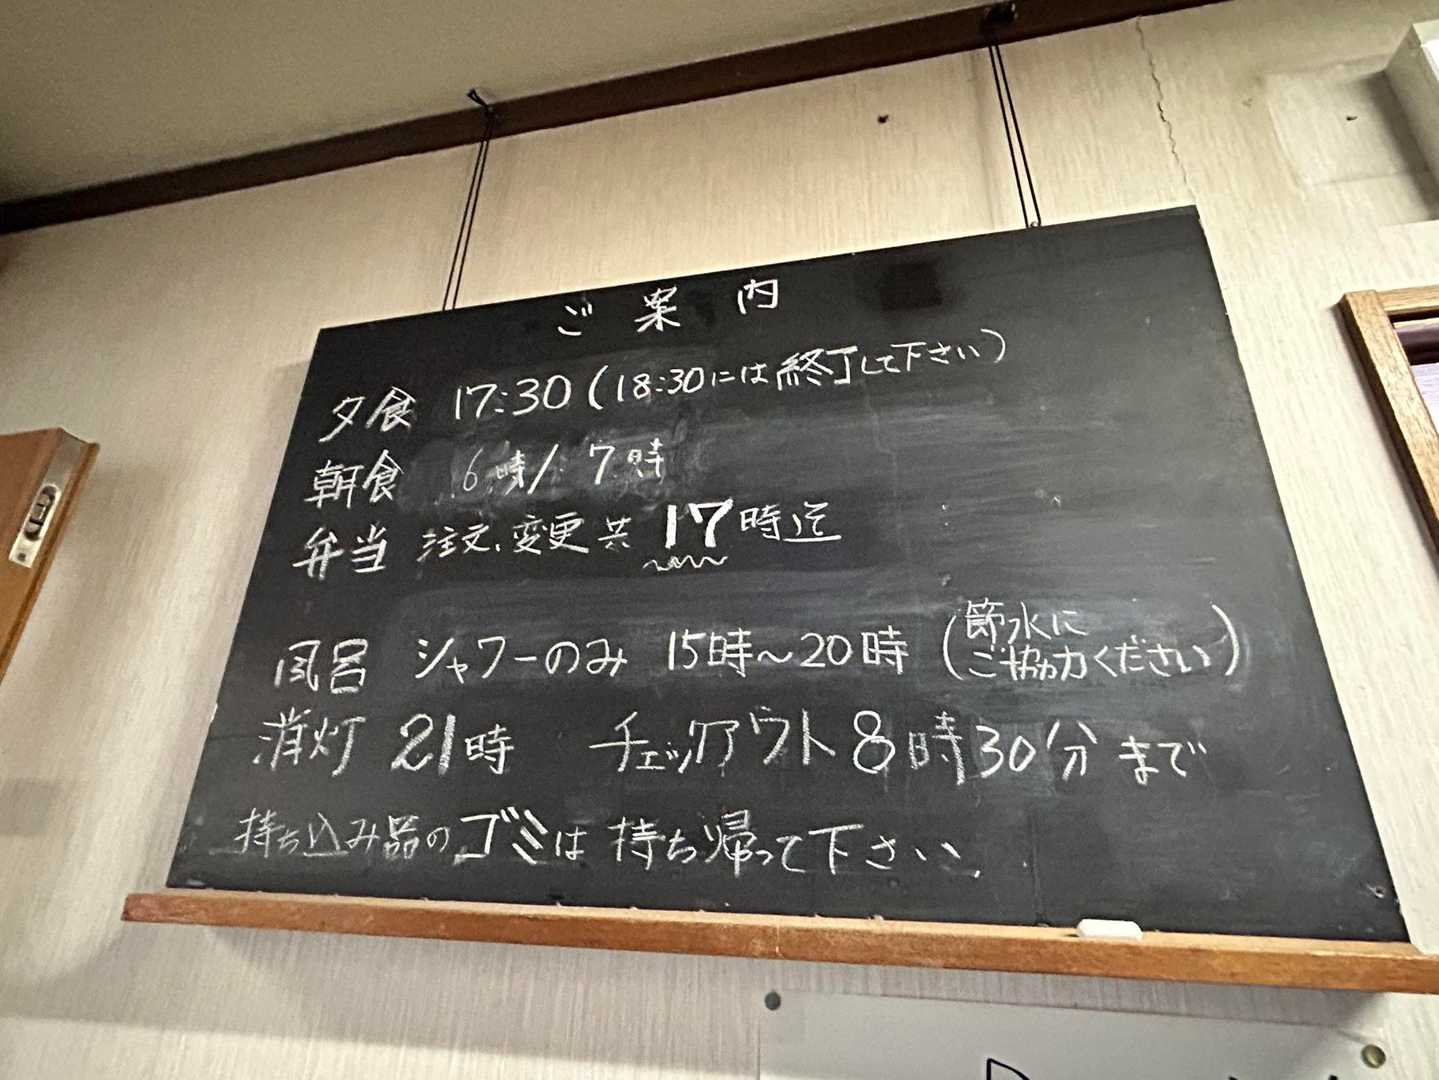 ご案内
夕食 17:30 (18:30には終了して下さい)
朝食 6時/7時
弁当 注文、変更共 17時迄
風呂 シャワーのみ 15時〜20時 (節水にご協力ください)
消灯 21時 チェックアウト8時30分まで
持ち込み品のゴミは持ち帰って下さい、